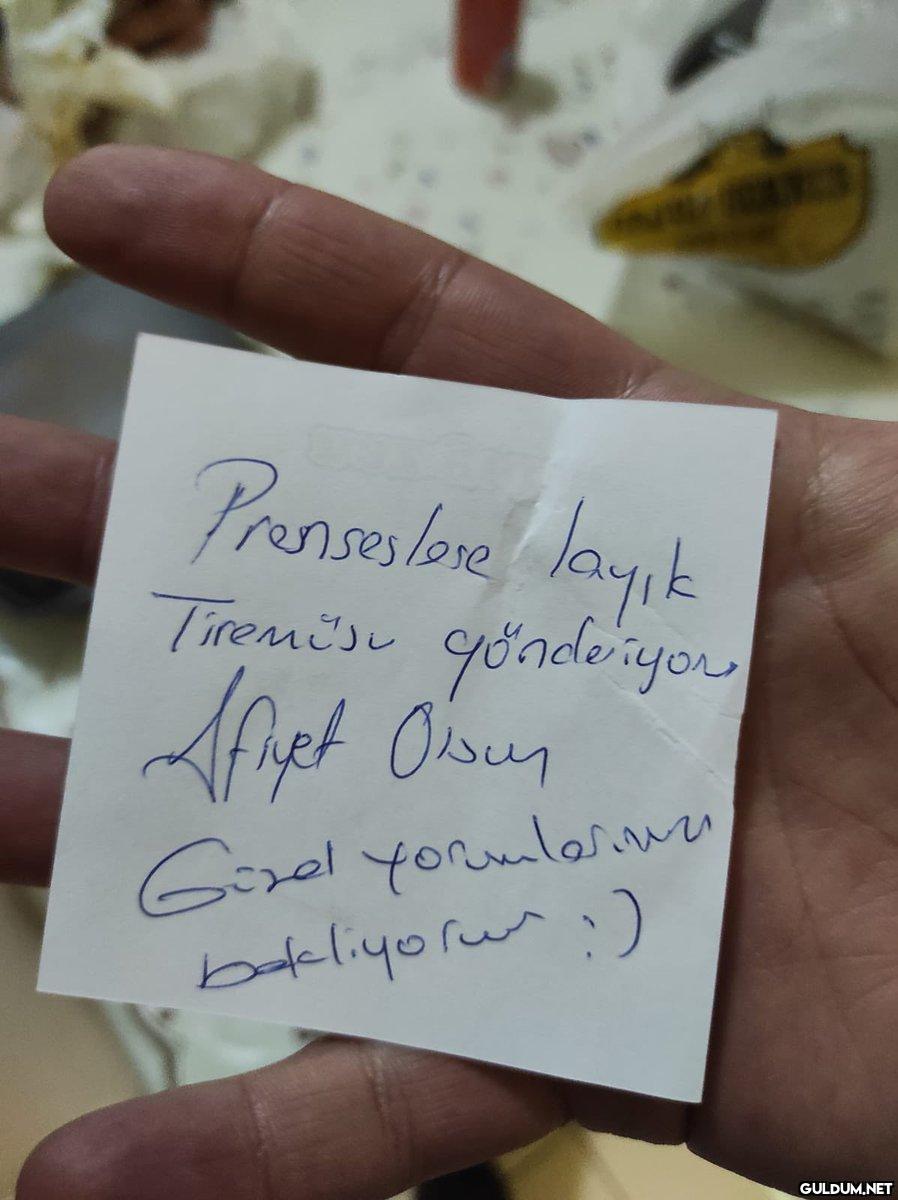 Prenseslere layık
Tiremüsu gönderiyoruz
Afiyet Olsun
Güzel yorumlarınızı
bekliyoruz :)
GULDUM.NET